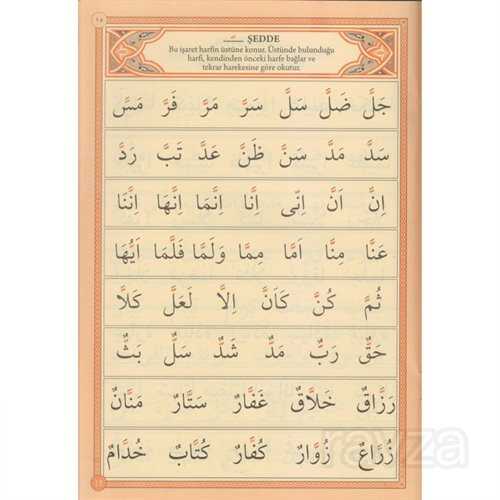 ŞEDDE
Bu işaret harfin üstüne konur. Üstünde bulunduğu
harfi, kendinden önceki harfe bağlar ve
tekrar harekesine göre okutur.
جَلَّ ضَلَّ سَلَّ سَرَّ مَرَّ فَرَّ مَسَّ
سَدَّ مَدَّ سَنَّ ظَنَّ عَدَّ تَبَّ رَدَّ
اِنَّ اَنَّ اِنّٖى اِنَّا اِنَّمَا اِنَّهَا اِنَّنَا
عَنَّا مِنَّا اَمَّا مِمَّا وَلَمَّا فَلَمَّا اَيُّهَا
ثُمَّ كُنَّ كَاَنَّ اِلَّا لَعَلَّ كَلَّا
حَقٌّ رَبٌّ مَدٌّ شَدٌّ سَلٌّ بَثٌّ
رَزَّاقٌ خَلَّاقٌ غَفَّارٌ سَتَّارٌ مَنَّانٌ
زُرَّاعٌ زُوَّارٌ كُفَّارٌ كُتَّابٌ خُدَّامٌ
rayza